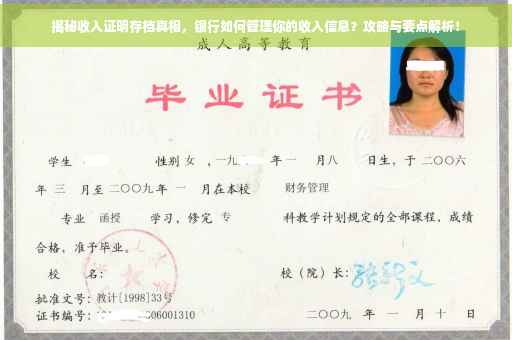 揭秘收入证明存档真相，银行如何管理你的收入信息？攻略与要点解析！
成人高等教育
毕业证书
学生 性别 女 ，一九 年 一 月八 日生，于 二〇〇六
年 三 月至 二〇〇九 年 一 月在本校 财务管理
专业 函授 学习，修完 专 科教学计划规定的全部课程，成绩
合格，准予毕业。
校 名： 校（院）长：
批准文号：教计[1998]33号
证书编号： 606001310 二〇〇九 年 一 月 十 日